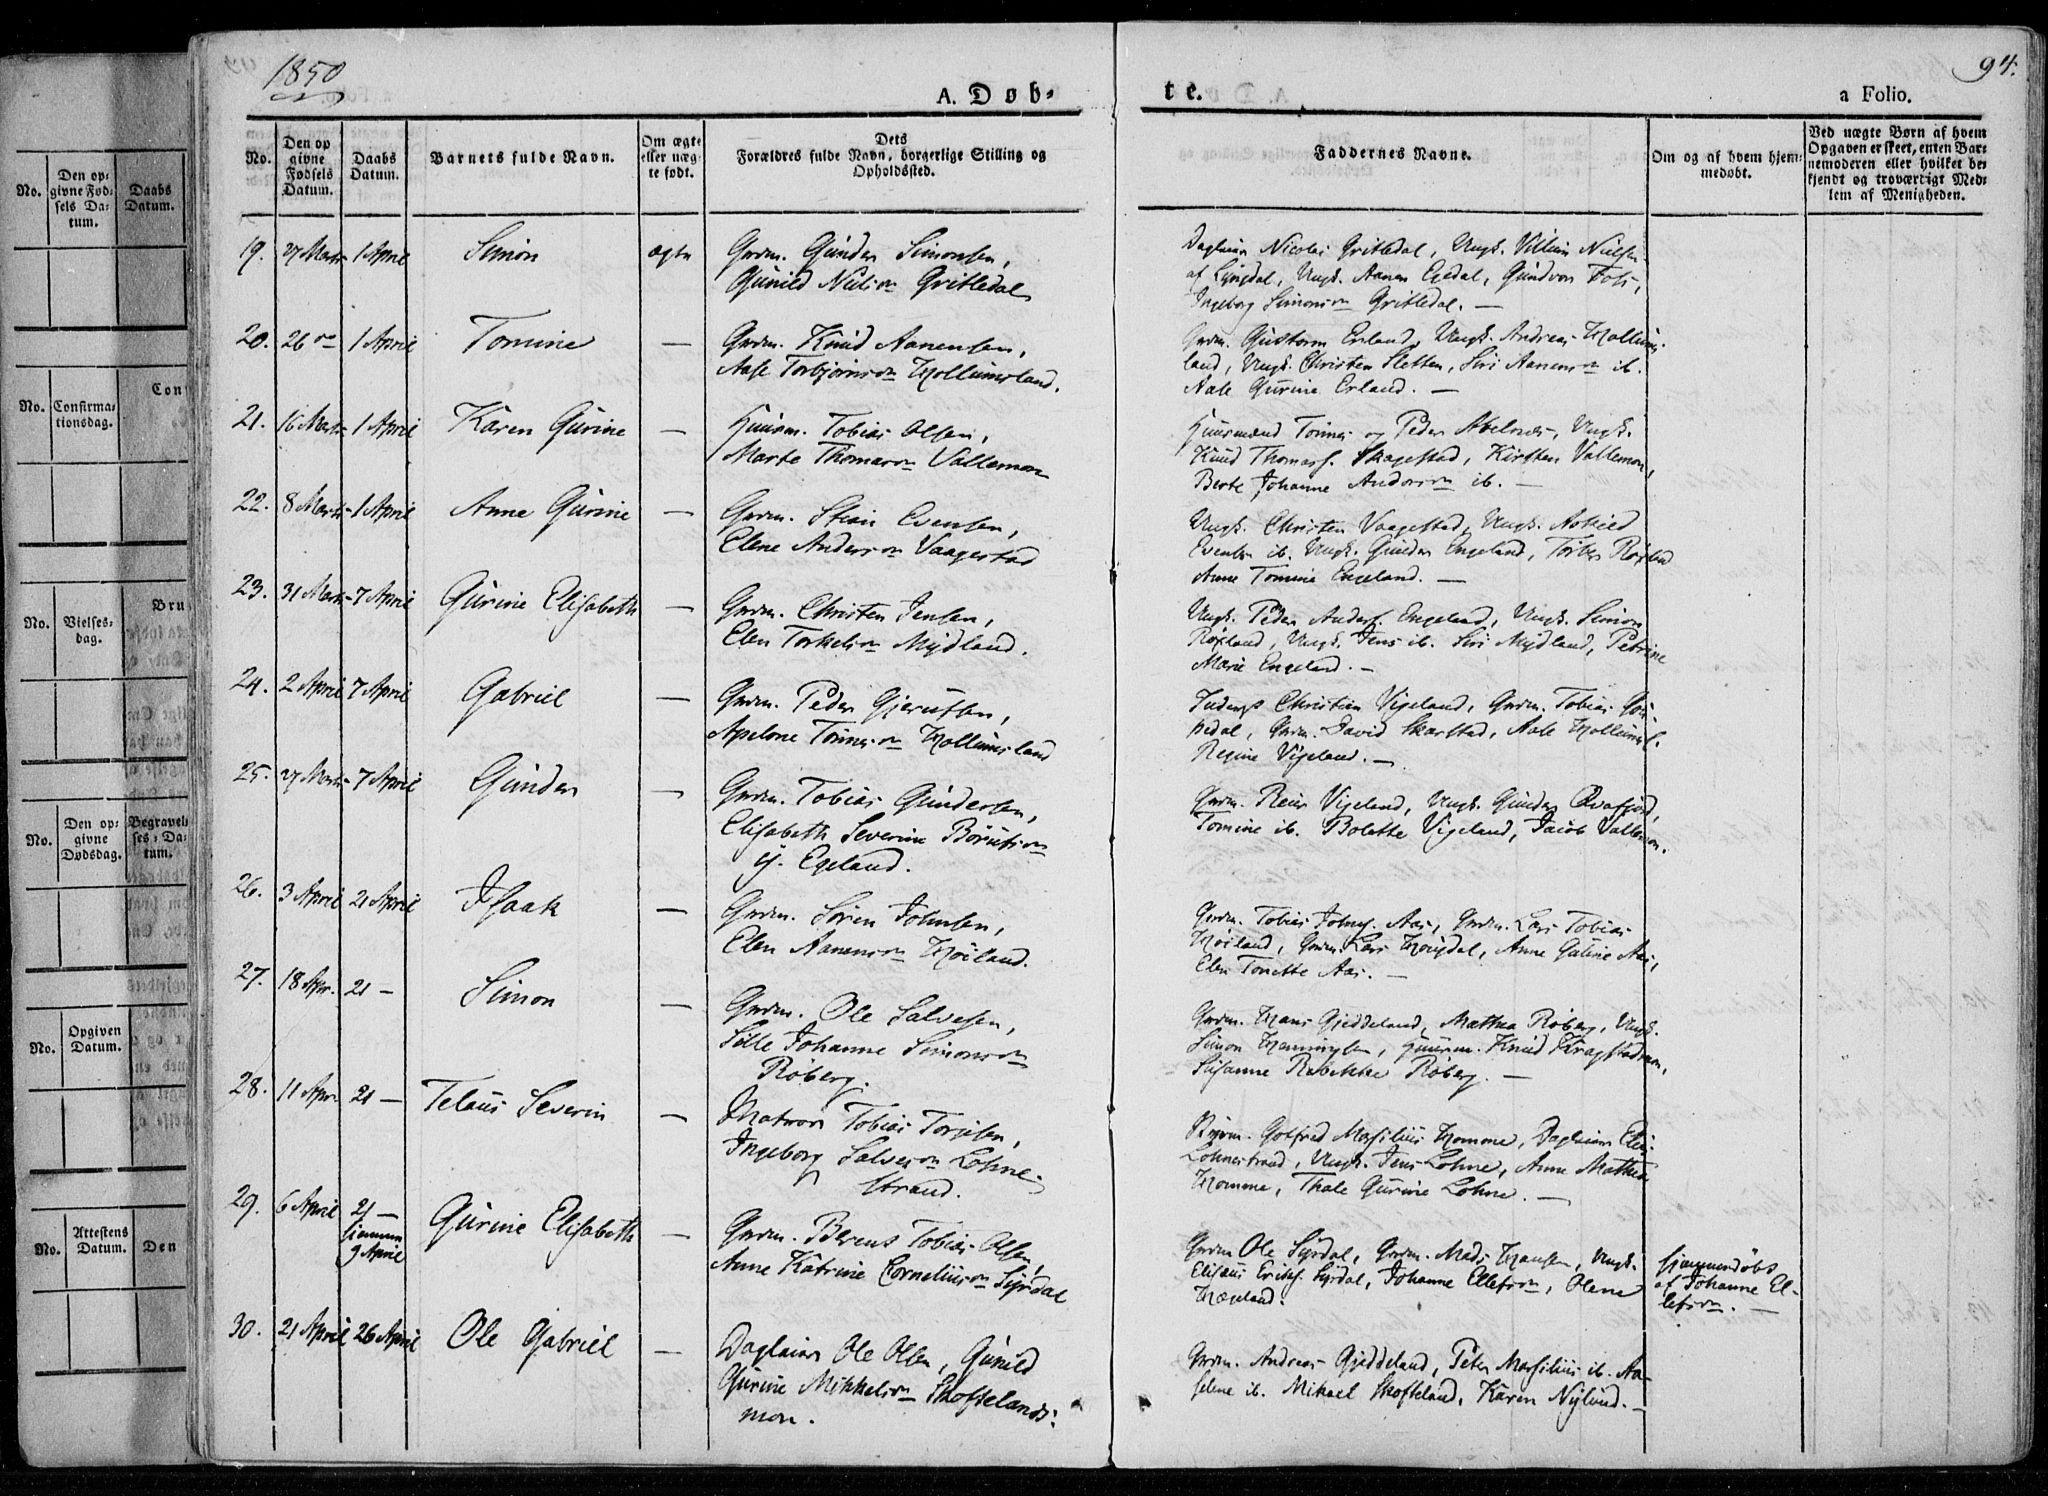 1850
94.
A. Døb-
te.
a Folio.
No.
Den op
givne
Fødsels
Datum.
Daabs
Datum.
Barnets fulde Navn.
Om ægte
eller uæg-
te født.
Dets
Forældres fulde Navn, borgerlige Stilling og
Opholdssted.
Faddernes Navne.
Om og af hvem hjem-
medøbt.
Ved uægte Børn af hvem
Opgaven er skeet, enten Bar-
nemoderen eller hvilket be-
kjendt og troværdigt Med-
lem af Menigheden.
19. 27 Marts 1 April Simon ægte Grdm. Gunder Simonsen,
Gunild Nielsn Gritledal
Dagleier Nicolai Gritledal, Ungk. Villum Nielsen
af Lyngdal, Ungk. Aanen Egdal, Gundvor Foss,
Ingeborg Simonsn Gritledal. —
20. 26 1 April Tomine — Grdm. Knud Aanensen,
Aase Torbjørnsn Hollumsland.
Grdm. Guttorm Erland, Ungk. Andreas Hollums-
land, Ungk. Christen Sletten, Siri Aanensn ib.
Aale Gurine Erland. —
21. 16 Marts 1 April Karen Gurine — Huusm. Tobias Olsen,
Marte Thomasn Vallemon
Huusmænd Tønnes og Peder Abelnes, Ungk.
Knud Thomass. Skagestad, Kirsten Vallemon,
Berte Johanne Andersn ib. —
22. 8 Marts 1 April Anne Gurine — Grdm. Stian Evensen,
Elene Andersn Vaagestad
Ungk. Christen Vaagestad, Ungk. Askild
Evens. ib. Ungk. Gunder Engeland,
Anne Tomine Engeland. —
23. 31 Marts 7 April Gurine Elisabeth — Grdm. Christen Jensen,
Elen Torkelsn Mydland.
Ungk. Peder Anders. Engeland, Ungk. Simon
Røjland, Ungk. Jens ib. Siri Mydland, Petrine
Marie Engeland. —
24. 2 April 7 April Gabriel — Grdm. Peder Gjerulfsen,
Apelone Tønnesn Hollumsland
Christian Vigeland, Grdm. Tobias
Grdm. David Skarstad, Aale Hollumsl.
Regine Vigeland. —
25. 27 Marts 7 April Gunder — Grdm. Tobias Gundersen,
Elisabeth Severine Børufsn
y. Egeland.
Grdm. Reier Vigeland, Ungk. Gunder Qvafjord,
Tomine ib. Bolette Vigeland, Jacob Vallemon.
26. 3 April 21 April Isaak — Grdm. Søren Johnsen,
Elen Aanensn Høiland.
Grdm. Tobias Johns. Aas, Grdm. Lars Tobias
Høiland, Grdm. Lars Hougdal, Anne Guline Aas,
Elen Tonette Aas. —
27. 18 Apr. 21 — Simon — Grdm. Ole Salvesen,
Sille Johanne Simonsn
Roberg.
Grdm. Hans Gjeddeland, Mathea Roberg, Ungk.
Simon Henningsen, Huusm. Knud Kragstadmon,
Susanne Rebekka Roberg. —
28. 11 Apr. 21 — Telaus Severin — Matros Tobias Torjesen,
Ingeborg Salvesn Lohne-
strand.
Gotfred Marsilius Homme, Dagleier Elias
Lohnestrand, Ungk. Jens Lohne, Anne Mathea
Homme, Thale Gurine Lohne. —
29. 6 April 21 —
hjemme
9 April
Gurine Elisabeth — Grdm. Berent Tobias Olsen,
Anne Katrine Corneliusn Syrdal
Grdm Ole Syrdal, Grdm. Mads Hansen, Ungk.
Elisæus Eriks. Syrdal, Johanne Ellefsn, Olene
Hægeland.
hjemmedøbt
af Johanne El-
lefsn. —
30. 21 April 26 April Ole Gabriel — Dagleier Ole Olsen, Gunild
Gurine Mikkelsn Skoftelands-
mon.
Grdm. Andreas Gjeddeland, Peter Marsilius ib. Aa-
selene ib. Mikael Skofteland, Karen Nylund. —
No.
Den op-
givne Fød-
sels Da-
tum.
Daabs
Datum.
No.
Confirma-
tionsdag.
No.
Vielses-
dag.
No.
Den op-
givne
Dødsdag.
Begravel-
ses-Da-
tum.
No.
Opgiven
Datum.
No.
Attestens
Datum.
Den